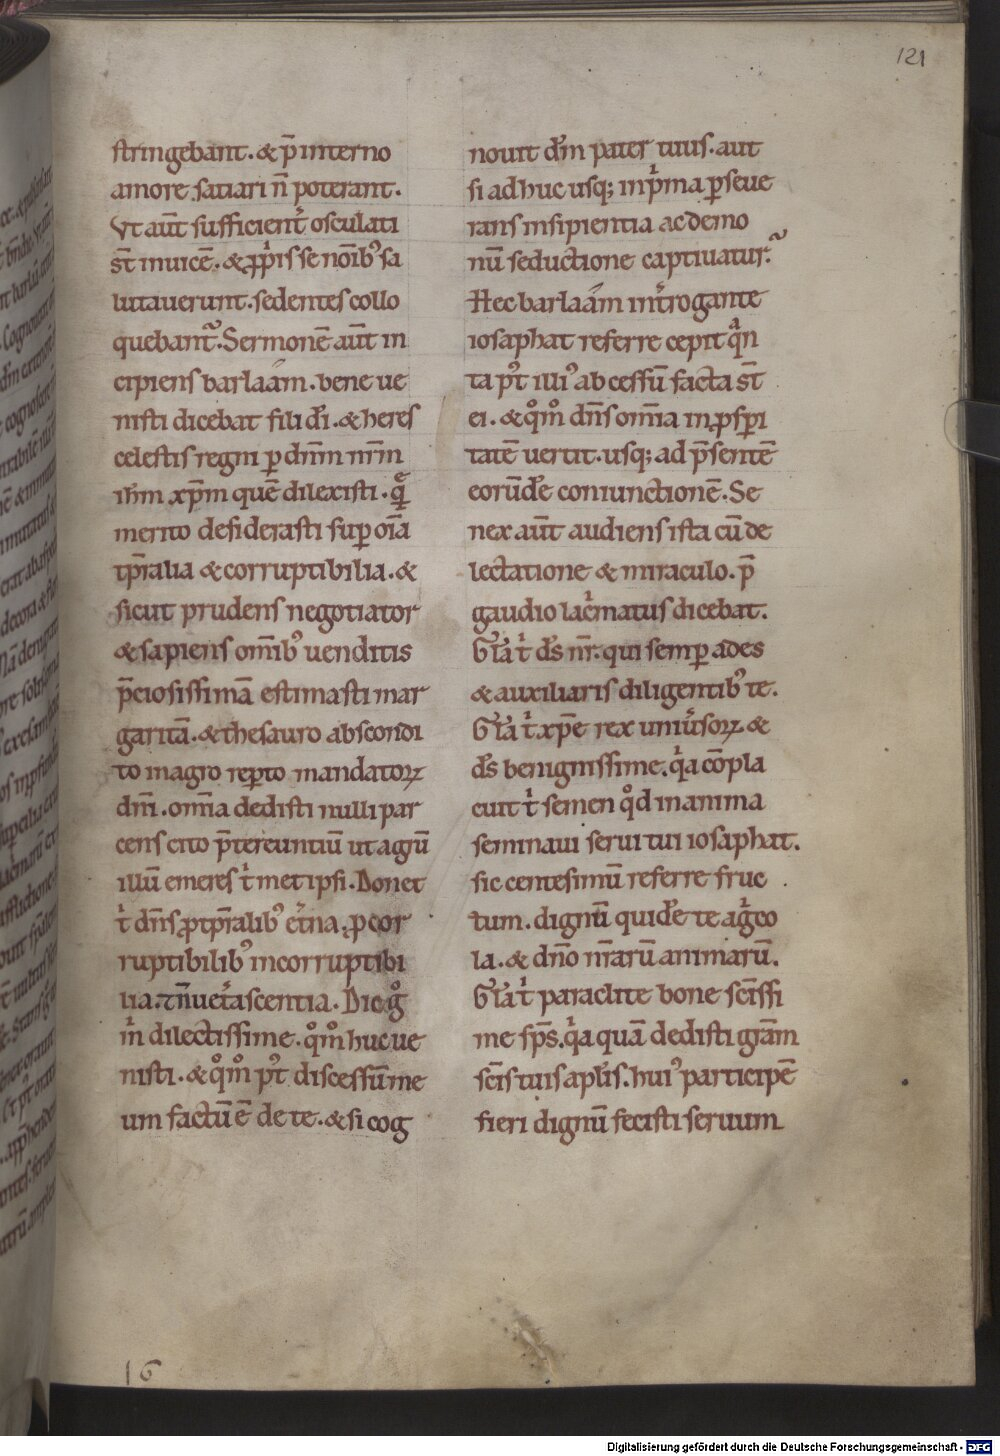 121
stringebant. & p̄ interno
amore satiari n̄ poterant.
Vt aūt sufficient᷑ osculati
s̄t inuicē. & ꝓp̍is se noı̄bꝰ sa
lutauerunt. sedentes collo
quebant᷑. Sermonē aūt in
cipiens barlaám. bene ue
nisti dicebat fili dı̄. & heres
celestis regni ꝑ dn̄m nr̄m
ih̄m xp̄m quē dilexisti. 
merito desiderasti suꝑ oı̄a
tp̄ralia & corruptibilia. &
sicut prudens negotiator
& sapiens om̄ibꝰ uenditis
p̄ciosissimā estimasti mar
garitā. & thesauro abscondi
to in agro reꝑto mandatoꝝ
dn̄i. om̄ia dedisti nulli par
cens cito p̄tereuntiū ut agū
illū emeres t̍ met ipsi. Donet
t̍ dn̄s ꝓ tp̄ralibꝰ et̄na. ꝓ cor
ruptibilibꝰ incorruptibi
lia. ⁊ n̄ uet᷑ascentia. Dic gͦ
m̍ dilectissime. qͦm̊ huc ue
nisti. & qͦm̊ pꝰt discessū me
um factū ē de te. & si cog
nouit dm̄ pater tuus. aut
si adhuc usq; in p̍ma ꝑseue
rans insipientia ac demo
nū seductione captiuatur.
Hec barlaám int̄rogante
iosaphat referre cepit qͣn
ta pꝰt illiꝰ abcessū facta s̄t
ei. & qͦm̊ dn̄s om̄ia in ꝓsꝑi
tatē uertit. usq; ad p̄sentē
eorūdē coniunctionē. Se
nex aūt audiens ista cū de
lectatione & miraculo. p̄
gaudio lac̍matus dicebat.
Gl̄a t̍ ds̄ nr̄. qui semꝑ ades
& auxiliaris diligentibꝰ te.
Gl̄a t̍ xp̄e rex uniūsoꝝ &
ds̄ benignissime. q̍a cōpla
cuit t̍ semen qͦd in anima
seminaui serui tui iosaphat.
sic centesimū referre fruc
tum. dignū quidē te ag̍co
la. & dn̄o nr̄arū animarū.
Gl̄a t̍ paraclite bone sc̄issi
me sp̄s. q̍a quā dedisti gr̄am
sc̄is tuis apl̄is. huiꝰ participē
fieri dignū fecisti seruum
16
Digitalisierung gefördert durch die Deutsche Forschungsgemeinschaft - DFG